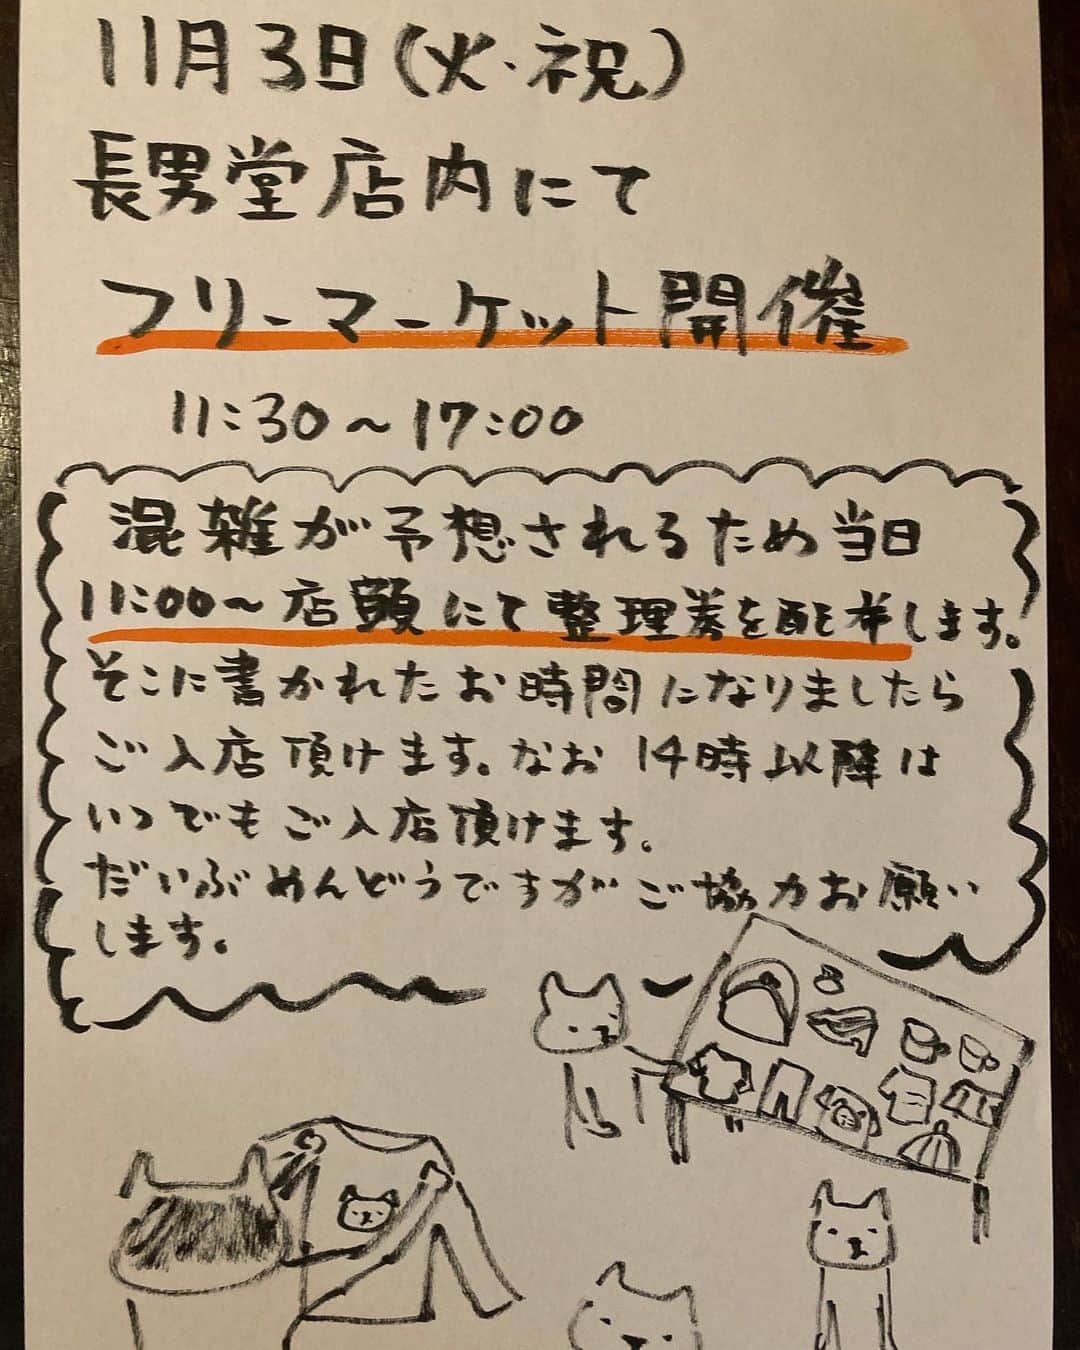 11月3日(火·祝)
長男堂店内にて
フリーマーケット開催
11:30〜17:00
混雑が予想されるため当日
11:00〜店頭にて整理券を配布します。
そこに書かれたお時間になりましたら
ご入店頂けます。なお14時以降は
いつでもご入店頂けます。
だいぶめんどうですがご協力お願い
します。